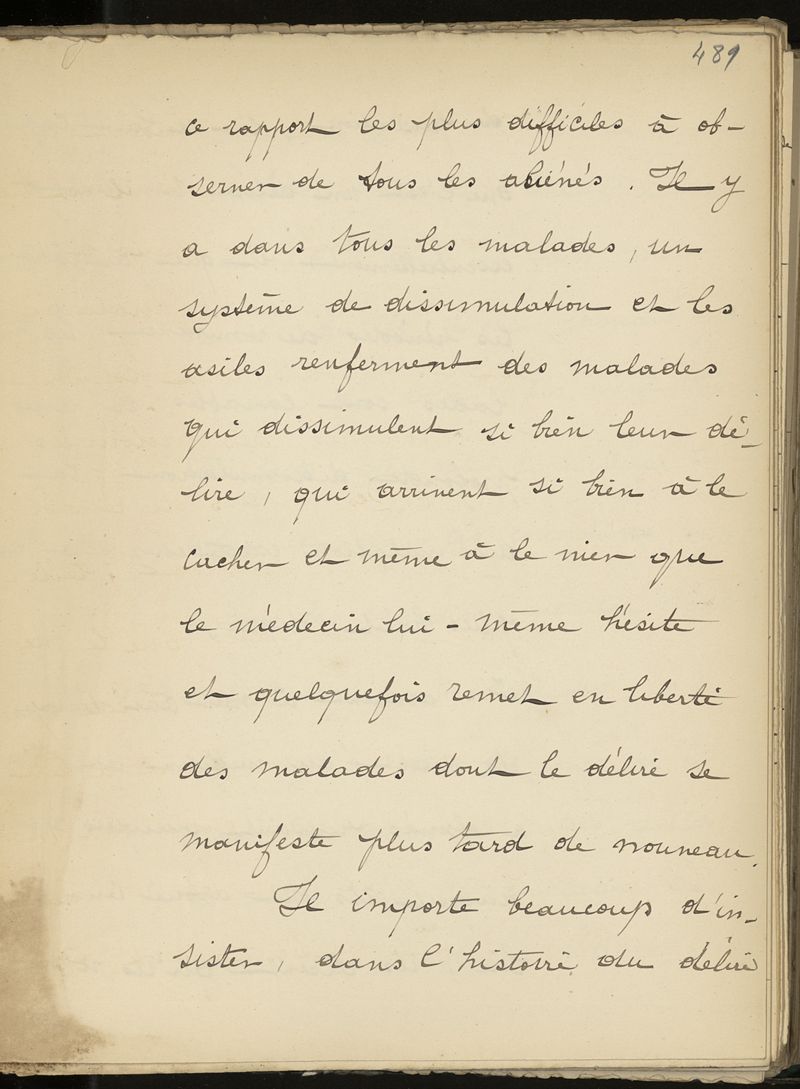 489
ce rapport les plus difficiles à ob-
server de tous les aliénés. Il y
a dans tous les malades, un
système de dissimulation et les
asiles renferment des malades
qui dissimulent si bien leur dé-
lire, qui arrivent si bien à le
cacher et même à le nier que
le médecin lui-même hésite
et quelquefois remet en liberté
des malades dont le délire se
manifeste plus tard de nouveau.
Il importe beaucoup d'in-
sister, dans l'histoire du délire